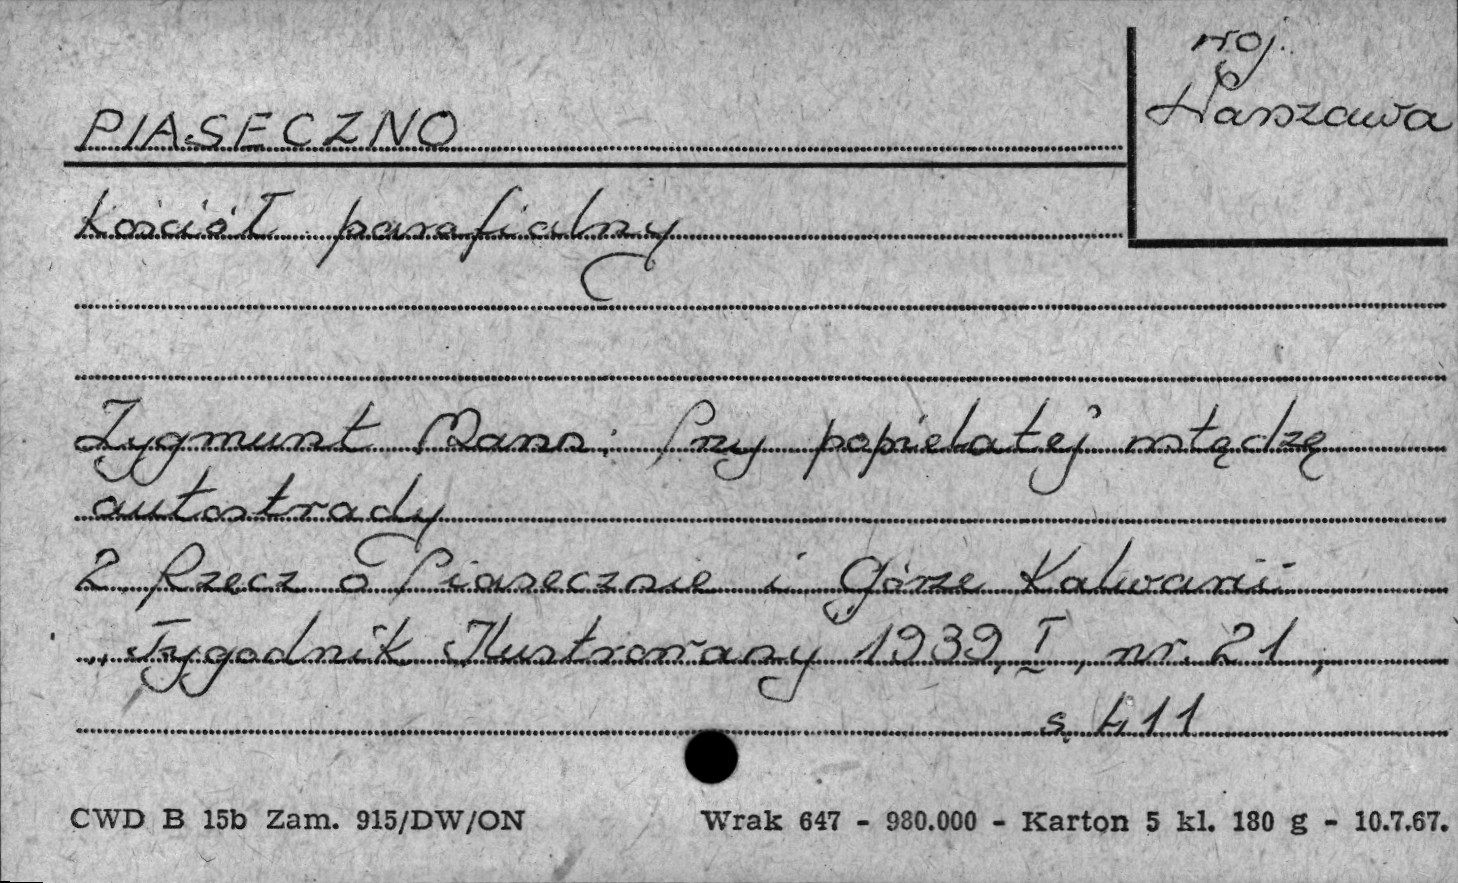 woj.
Warszawa
PIASECZNO
Kościół parafialny
Zygmunt Mann: Przy popielatej wstędze
autostrady
2 Rzecz o Piasecznie i Górze Kalwarii
„Tygodnik Ilustrowany 1939, I, nr. 21,
s. 411
CWD B 15b Zam. 915/DW/ON Wrak 647 - 980.000 - Karton 5 kl. 180 g - 10.7.67.